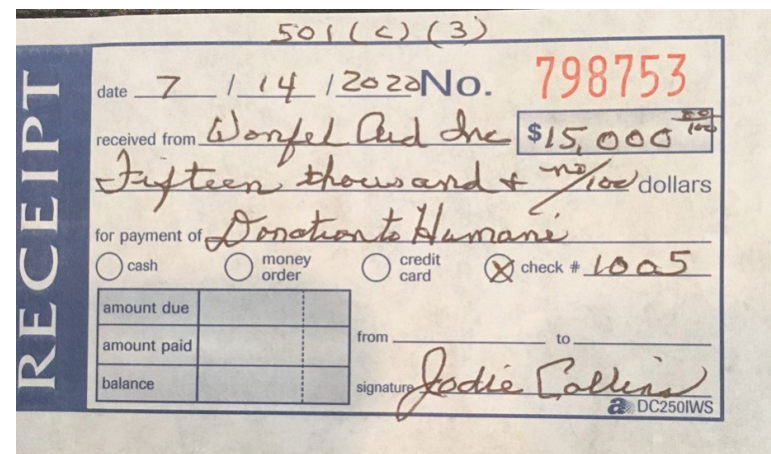 501(c)(3)
RECEIPT
date 7 / 14 / 2020 No. 798753
received from Wonfel Aid Inc $15,000 00/100
Fifteen thousand & no/100 dollars
for payment of Donation to Humane
cash money order credit card check # 1005
amount due
amount paid
balance
from to
signature Jodie Collins
DC250IWS